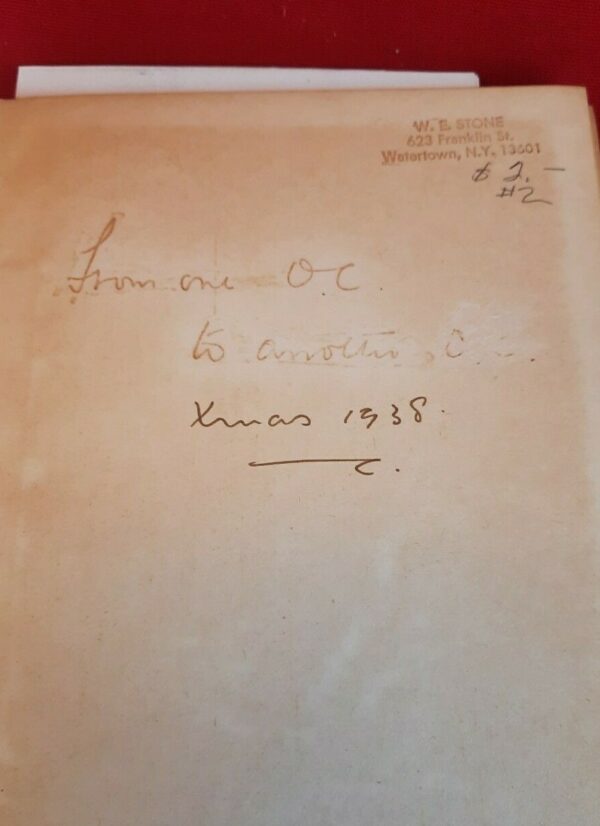 W. E. STONE
623 Franklin St.
Watertown, N.Y. 13601
$ 2.—
#2
From one O.C.
to another
Xmas 1938.